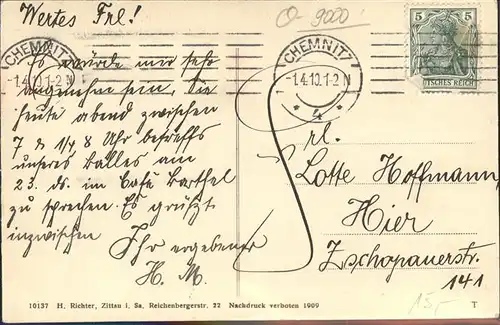 Wertes Frl.!
Es würde mir sehr
angenehm sein, Sie
heute abend zwischen
7 & 1/4 8 Uhr betreffs
unseres Balles am
23. ds. im Café Barthel
zu sprechen. Es grüßt
inzwischen
Ihr ergebener
H. M.
O-9000
CHEMNITZ
1.4.10.1-2 N
CHEMNITZ 7
-1.4.10.1-2 N
* 4 *
5 5
DEUTSCHES REICH
Frl.
Lotte Hoffmann,
Hier
Zschopauerstr.
141
15,-
10137 H. Richter, Zittau i. Sa. Reichenbergerstr. 22 Nachdruck verboten 1909 T